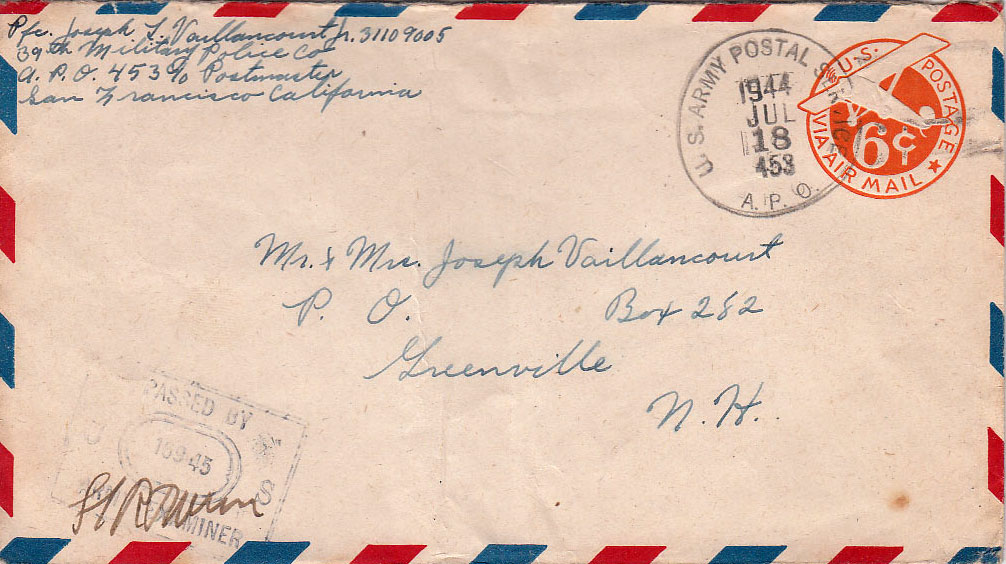 Pfc. Joseph L. Vaillancourt Jr. 31109005
39th Military Police Co.
A. P. O. 453 % Postmaster
San Francisco California
U. S. ARMY POSTAL SERVICE
1944
JUL
18
453
A. P. O.
U. S. POSTAGE
6¢
VIA AIR MAIL
Mr. & Mrs. Joseph Vaillancourt
P. O. Box 282
Greenville
N. H.
PASSED BY
U S
15945
ARMY EXAMINER